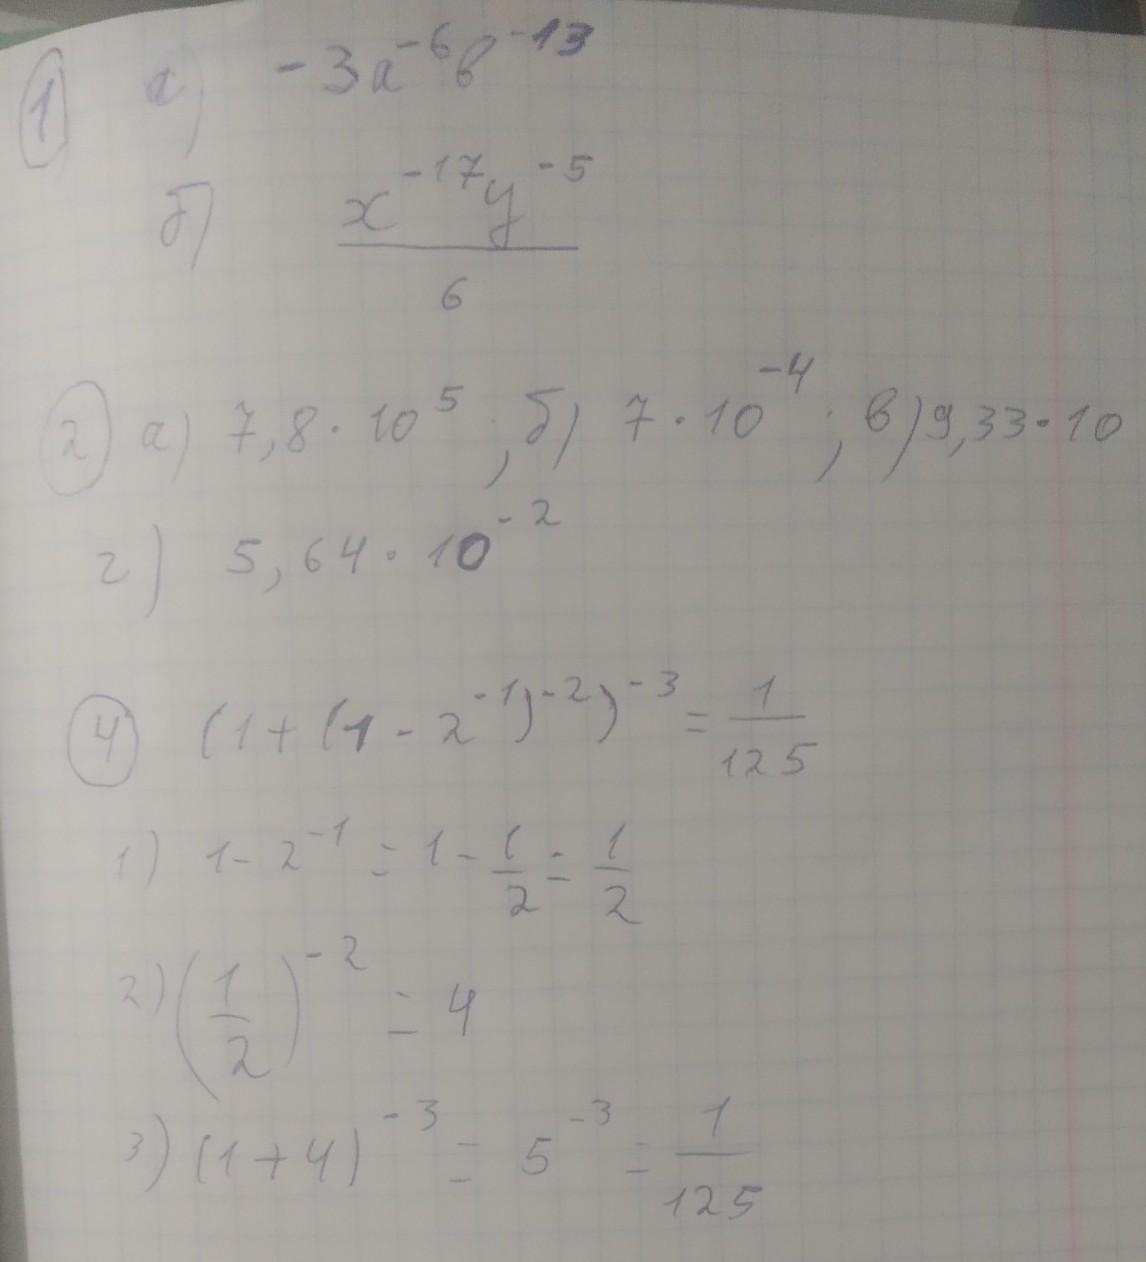 1 а) -3a⁻⁶b⁻¹³
б) x⁻¹⁷y⁻⁵
6
2 а) 7,8·10⁵; б) 7·10⁻⁴; в) 9,33·10
г) 5,64·10⁻²
4 (1+(1-2⁻¹)⁻²)⁻³=1/125
1) 1-2⁻¹=1-1/2=1/2
2) (1/2)⁻²=4
3) (1+4)⁻³=5⁻³=1/125